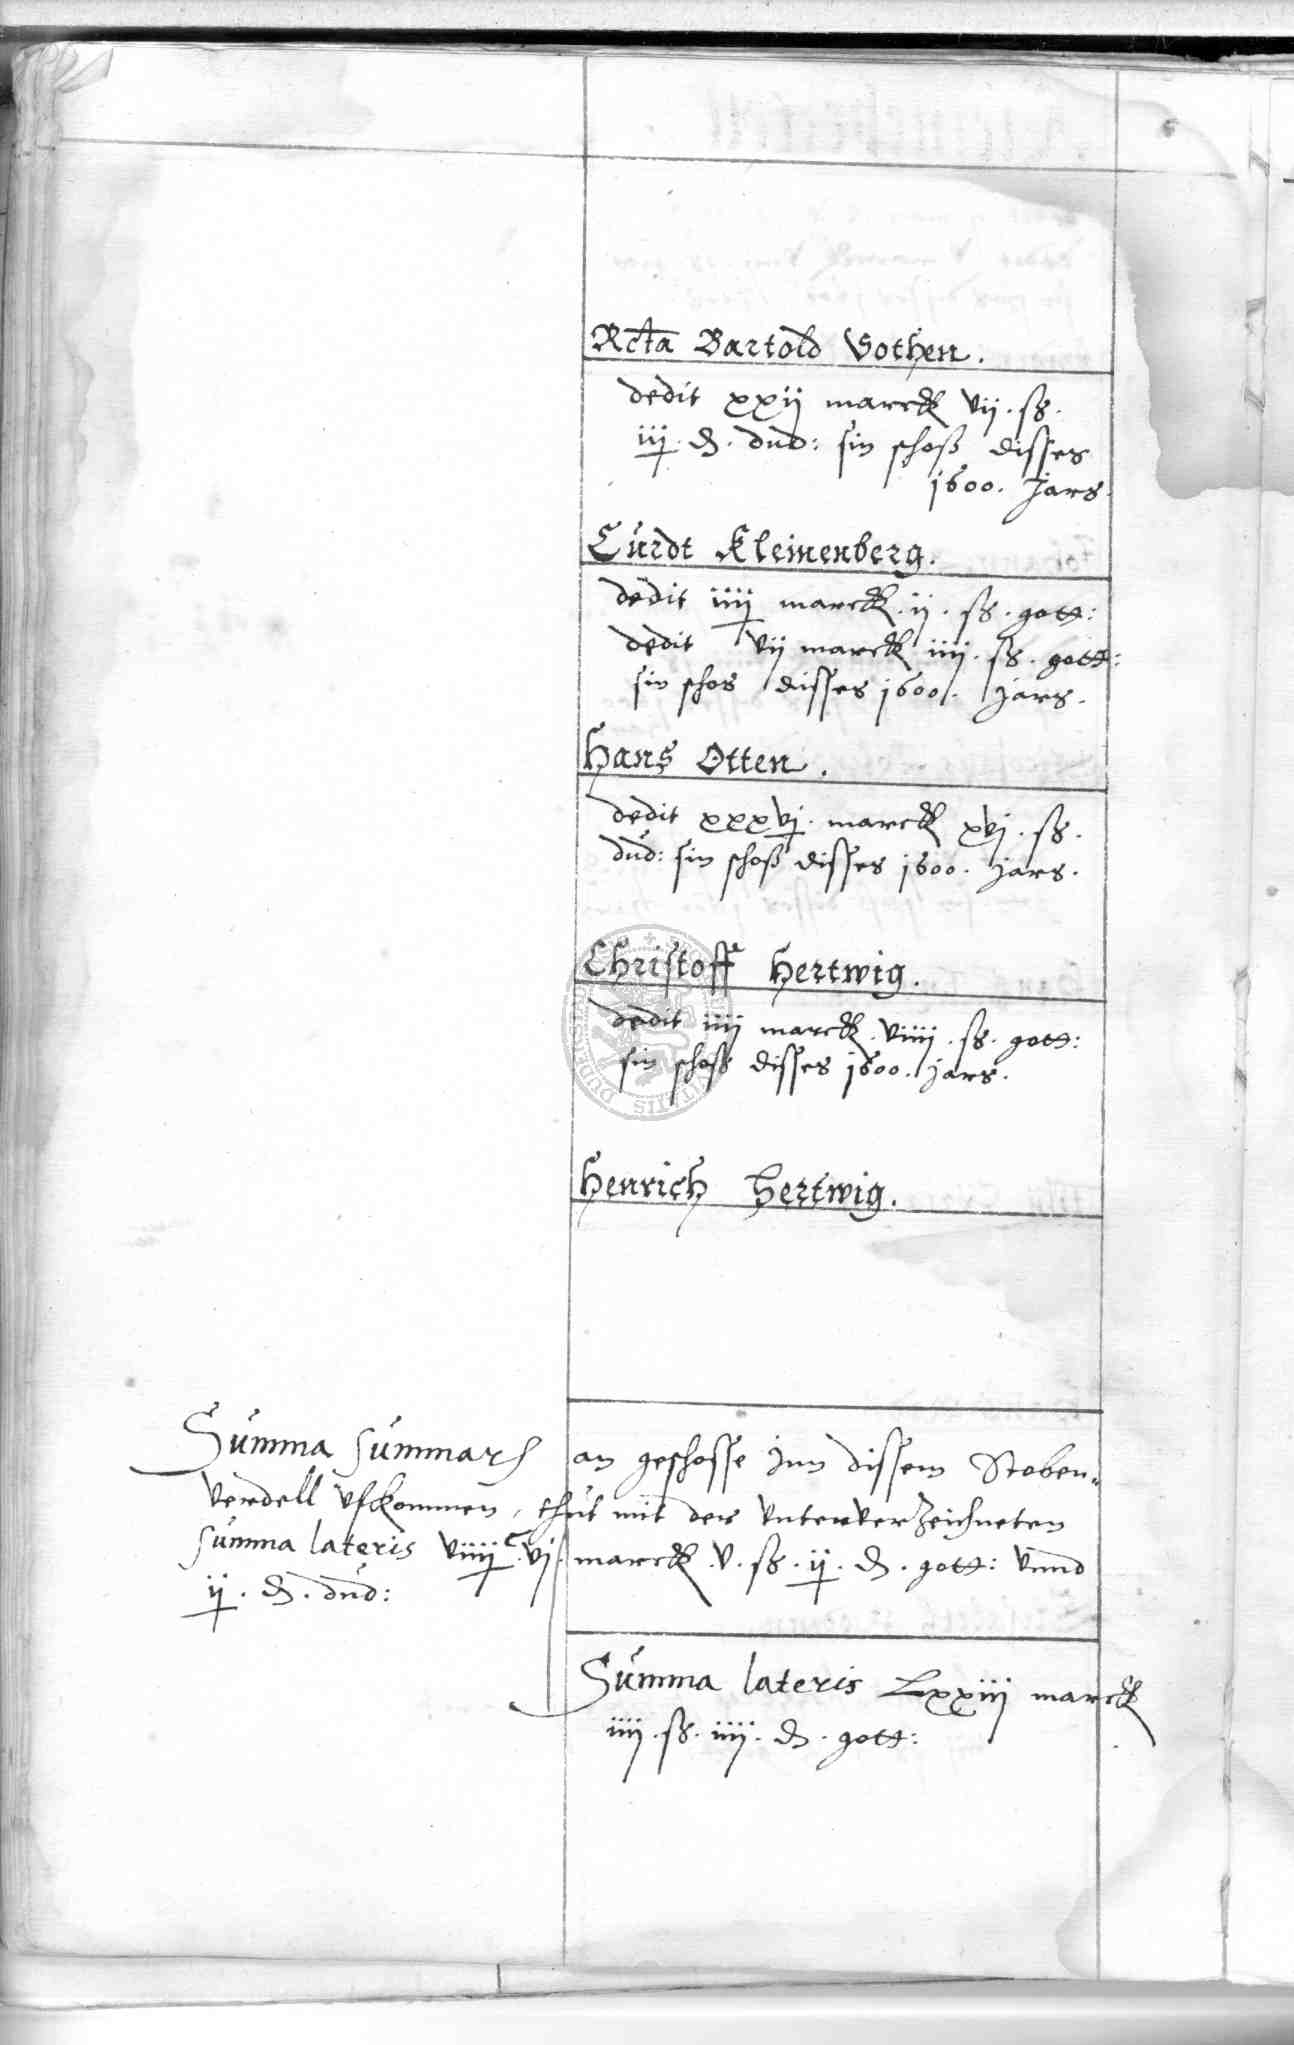 Rcta Bartold Vothen.
dedit xxij marck vij. ß.
iij. d. dud: sin schoß disses
1600. Jars.
Curdt Kleinenberg.
dedit iiij marck. ij. ß. gott:
dedit vij marck iiij. ß. gott:
sin schos disses 1600. Jars.
Hans Otten.
dedit xxxvj. marck xvj. ß.
dud: sin schoß disses 1600. Jars.
Christoff Hertwig.
dedit iiij marck. viiij. ß. gott:
sin schoß disses 1600. Jars.
Henrich Hertwig.
Summa summar an geschosse Jnn dissem Stoben-
verdell vfkommen, thut mit der vnterverzeichneten
summa lateris viiijc. vj. marck. v. ß. ij. d. gott: vnnd
ij. d. dud:
Summa lateris Lxxiij marck
iiij. ß. iiij. d. gott: